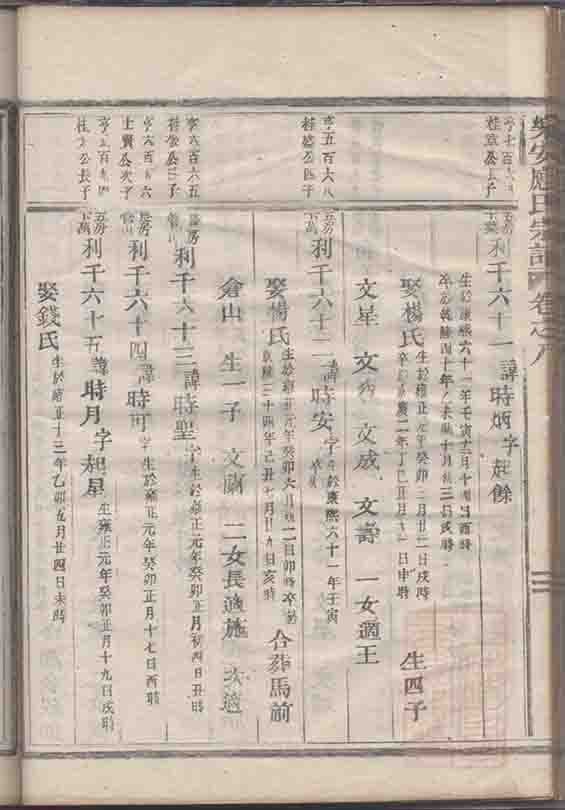 應氏宗譜 卷之八
亨七百六
桂 公長子
利千六十一 諱時炳 字起餘
生於康熙六十一年壬寅 月十四日酉時
卒於乾隆四十年乙未 十月 三日戌時
娶楊氏 生於雍正元年癸卯二月廿二日戌時 生四子
卒於嘉慶二年丁巳正月 一日申時
文星 文 文成 文壽 一女適王
亨五百六八
桂 公四子
五房
利千六十二 諱時安 字 生於康熙六十一年壬寅
娶楊氏 生於雍正元年癸卯六月 二日卯時卒於 合葬馬前
乾隆三十四年己丑七月廿九日亥時
倉山 生一子 文 二女長適施 次適
亨六百六五
桂 公 子
房
利千六十三 諱時聖 字 生於雍正元年癸卯正月初四日丑時
亨六百 六
士賢公次子
房
利千六十四 諱時可 字 生於雍正元年癸卯正月十七日酉時
亨 百 四
桂 公長子
五房
利千六十五 諱時月 字起星 生雍正元年癸卯正月十九日戌時
娶錢氏 生於雍正十三年乙卯五月廿四日未時